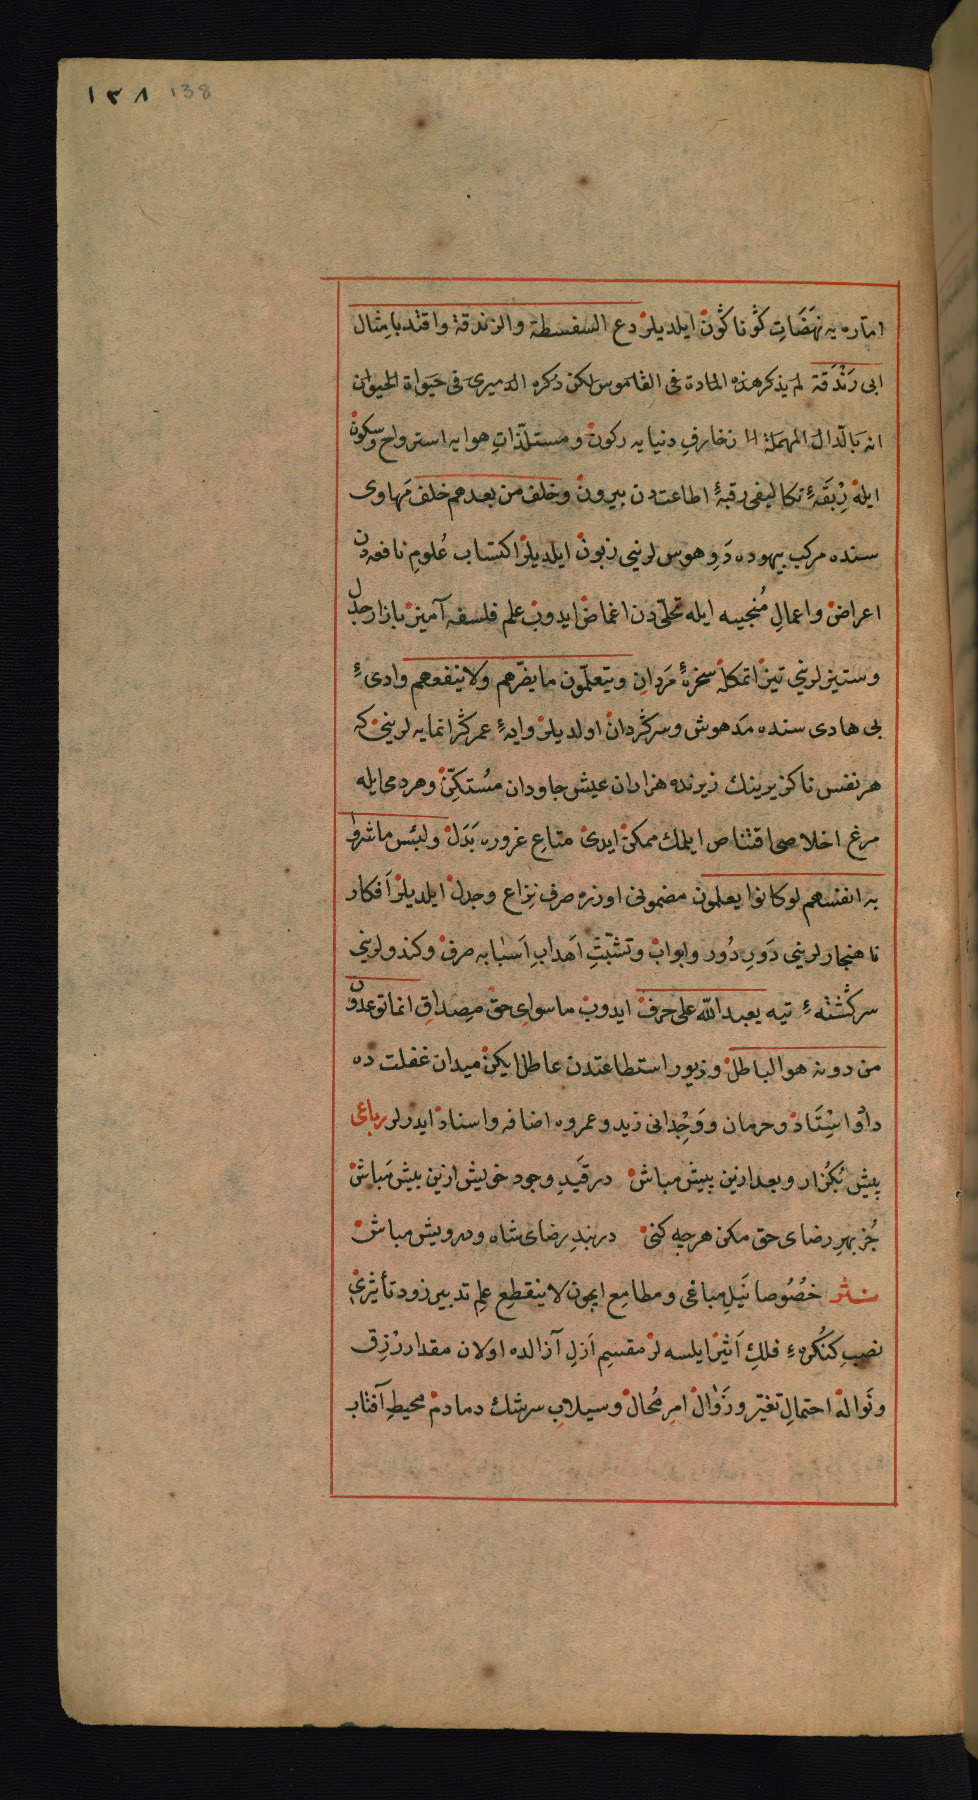 ١٣٨ 138
امّاره يه نهضاتِ كوناكون ايلديلر دع السفسطة والزندقة واقتد بامثال
ابى رَنْدَقة لم يذكر هذه المادة فى القاموس لكن ذكره الدميرى فى حَيٰوة الحيوان
انه بالدال المهملة اا زخارفِ دنيايه ركون ومستلذّاتِ هوايه استرواح وسكون
ايله رِبقَۀ تكاليفى رقبۀ اطاعتدن بيرون وخلف من بعدهم خلف مَهاوى
سنده مركب بيهوده دَوِ هوس لرينى زبون ايلديلر اكتساب عُلومِ نافعه‌دن
اعراض واعمالِ مُنجيه ايله تحلّى‌دن اغماض ايدوب علم فلسفه آميز بازار جدل
وستيزلرينى تيز اتمكله سخرۀ مَردان ويتعلّمون ما يضرّهم ولا ينفعهم وادىء
بى هادى سنده مدهوش وسركردان اولديلر وايۀ عمر كرانمايه لرينى كه
هر نفس ناكزيرينك زيرنده هزاران عيش جاودان مُستكِنّ وهر دمى ايله
مرغ اخلاصى اقتناص ايلمك ممكن ايدى متاعِ غروره بَدَل ولبئس ما شروا
به انفسهم لو كانوا يعلمون مضمونى اوزره صرف نِزاع وجدل ايلديلر اَفكار
ناهنجارلرينى دَورِ دُور وابواب وتشبّثِ اَهدابِ اَسبٰابه صرف وكندولرينى
سركشتهء تيه يعبد الله على حرف ايدوب ماسواى حق مِصداقِ انما توعدون
من دونه هو الباطل وزيور استطاعتدن عاطل ايكن ميدان غفلت ده
دادُ واسِتَاد وحرمان ووَجِدانى زيد وعمروه اضافه واسناد ايدرلر رباعى
پيش بُكْزار وبعد ازين پيش مباش درقَيدِ وجود خويش ازين بيش مَباش
جُز بهرِ رضاى حق مكن هرچه كنى دربندِ رضاى شاه ودرويش مباش
نثر خصُوصا نَيلِ مباغى ومطامِع ايچون لا ينقطِع علِم تدبير زود تأثيرى
نصبِ كنكرهء فلكِ اَثير ايلسه لر مقسِم اَزلِ آزالده اولان مقدار رِزْق
ونَواله احتمالِ تغيّر وزَوٰال امرِ مُحال وسيلابِ سرشك دمادم محيطِ آفتاب